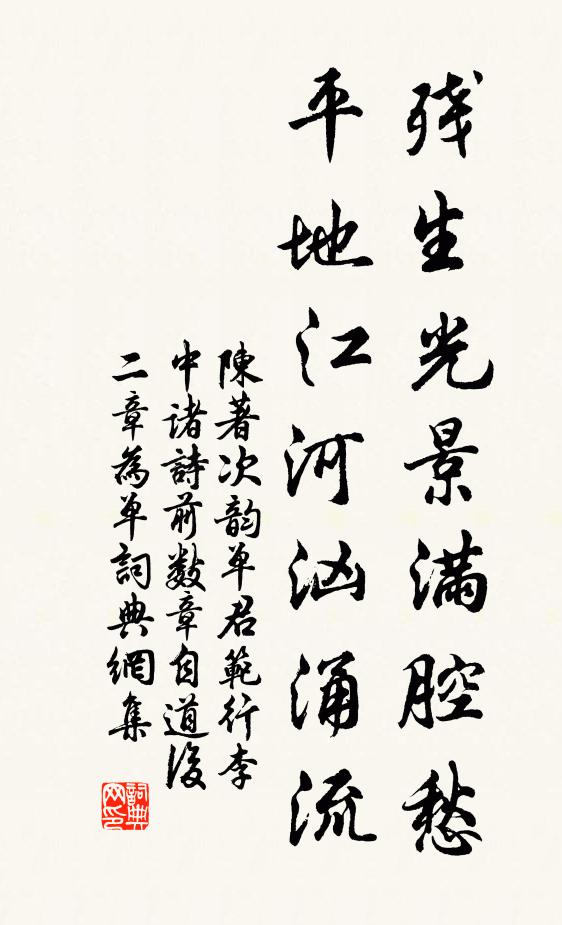 残生光景满腔愁
平地江河汹涌流
陳著次韵单君範行李
中诸詩前数章自道後
二章為单詞典網集
詞典
网印